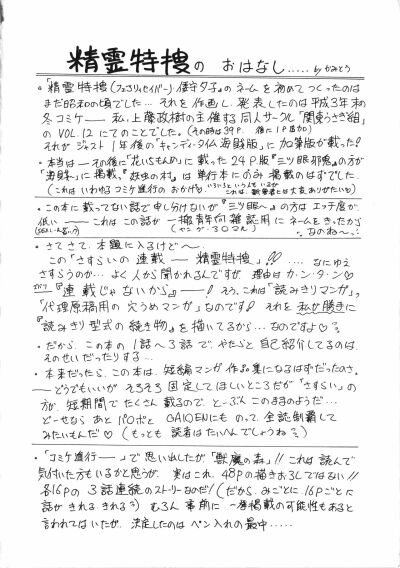 精霊特捜の おはなし..... by かみとう
・「精霊特捜(フェアリィセイバー)・倭守夕子」のネームを初めてつくったのは
まだ昭和の頃でした… それを作画し、発表したのは平成3年末の
冬コミケ── 私、上藤政樹の主催する同人サークル「関東うさぎ組」
のVOL.12にてのことでした。(その時は39P. 後に1P追加)
それがジャスト1年後の「キャンディ・タイム海賊版」に加筆版が載った!!
・本当は──その後に「花いちもんめ」に載った24P版『三ツ眼邪鬼』の方が
「海賊」に掲載、『妖虫の村』は単行本にのみ掲載のはずでした。
(これはいわゆるコミケ進行のおかげ。いろいろという人もいるがこれは、執筆者には大変ありがたいもの)
・この本に載ってない話で申し分けないが『三ツ眼〜』の方はエッチ度が
低い── これはこの話が一般青年向雑誌用にネームをきったから
なのね〜っ
・さてさて、本題に入るけど〜、
この「さすらいの連載── 精霊特捜」!!…… なにゆえ
さすらうのか… よく人から聞かれるんですが、理由はカ・ン・タ・ン♡
『連載じゃないから』──! そう、これは「読みきりマンガ」っ
「代理原稿用の穴うめマンガ」なのです! それを私が勝手に
『読みきり型式の続き物』を描いてるから…なのですよか?
・だから、この本の1話〜3話で やたらと自己紹介してるのは、
そのせいだったりする…
・本来だったら、この本は、短編マンガ作品集になるはずだったのさ。
──どうでもいいが そろそろ固定してほしいところだが「さすらい」の
方が、短期間でたくさん載るので、と〜ぶんこのままのようだ…
ど〜せなら あとパロポと GAIDENにも のって、全誌制覇して
みたいもんだ♡ (もっとも 読者はたいへんでしょうね?)
・「コミケ進行──」で思い出したが「獣魔の森」!! これは読んで
気付いた方もいるかと思うが、実はこれ、48Pの描きおろしではない!!
各16Pの 3話連続のストーリーなのだ!(だから、みごとに、16Pごとに
話が きれる、きれる?) むろん 事前に 一挙掲載の可能性もあると
言われてはいたが、決定したのは ペン入れの最中・・・・・